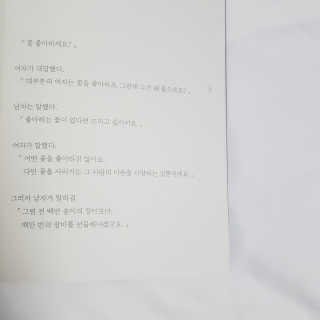 " 꽃 좋아하세요? "
여자가 대답했다.
" 대부분의 여자는 꽃을 좋아하죠. 그런데 그건 왜 물으세요? "
남자는 말했다.
" 좋아하는 꽃이 있다면 드리고 싶어서요. "
여자가 말했다.
" 어떤 꽃을 좋아하진 않아요.
다만 꽃을 사러가는 그 사람의 마음을 사랑하는 것뿐이에요. "
그러자 남자가 말하길
" 그럼 전 백만 송이의 장미보다,
백만 번의 장미를 선물해야겠군요. "